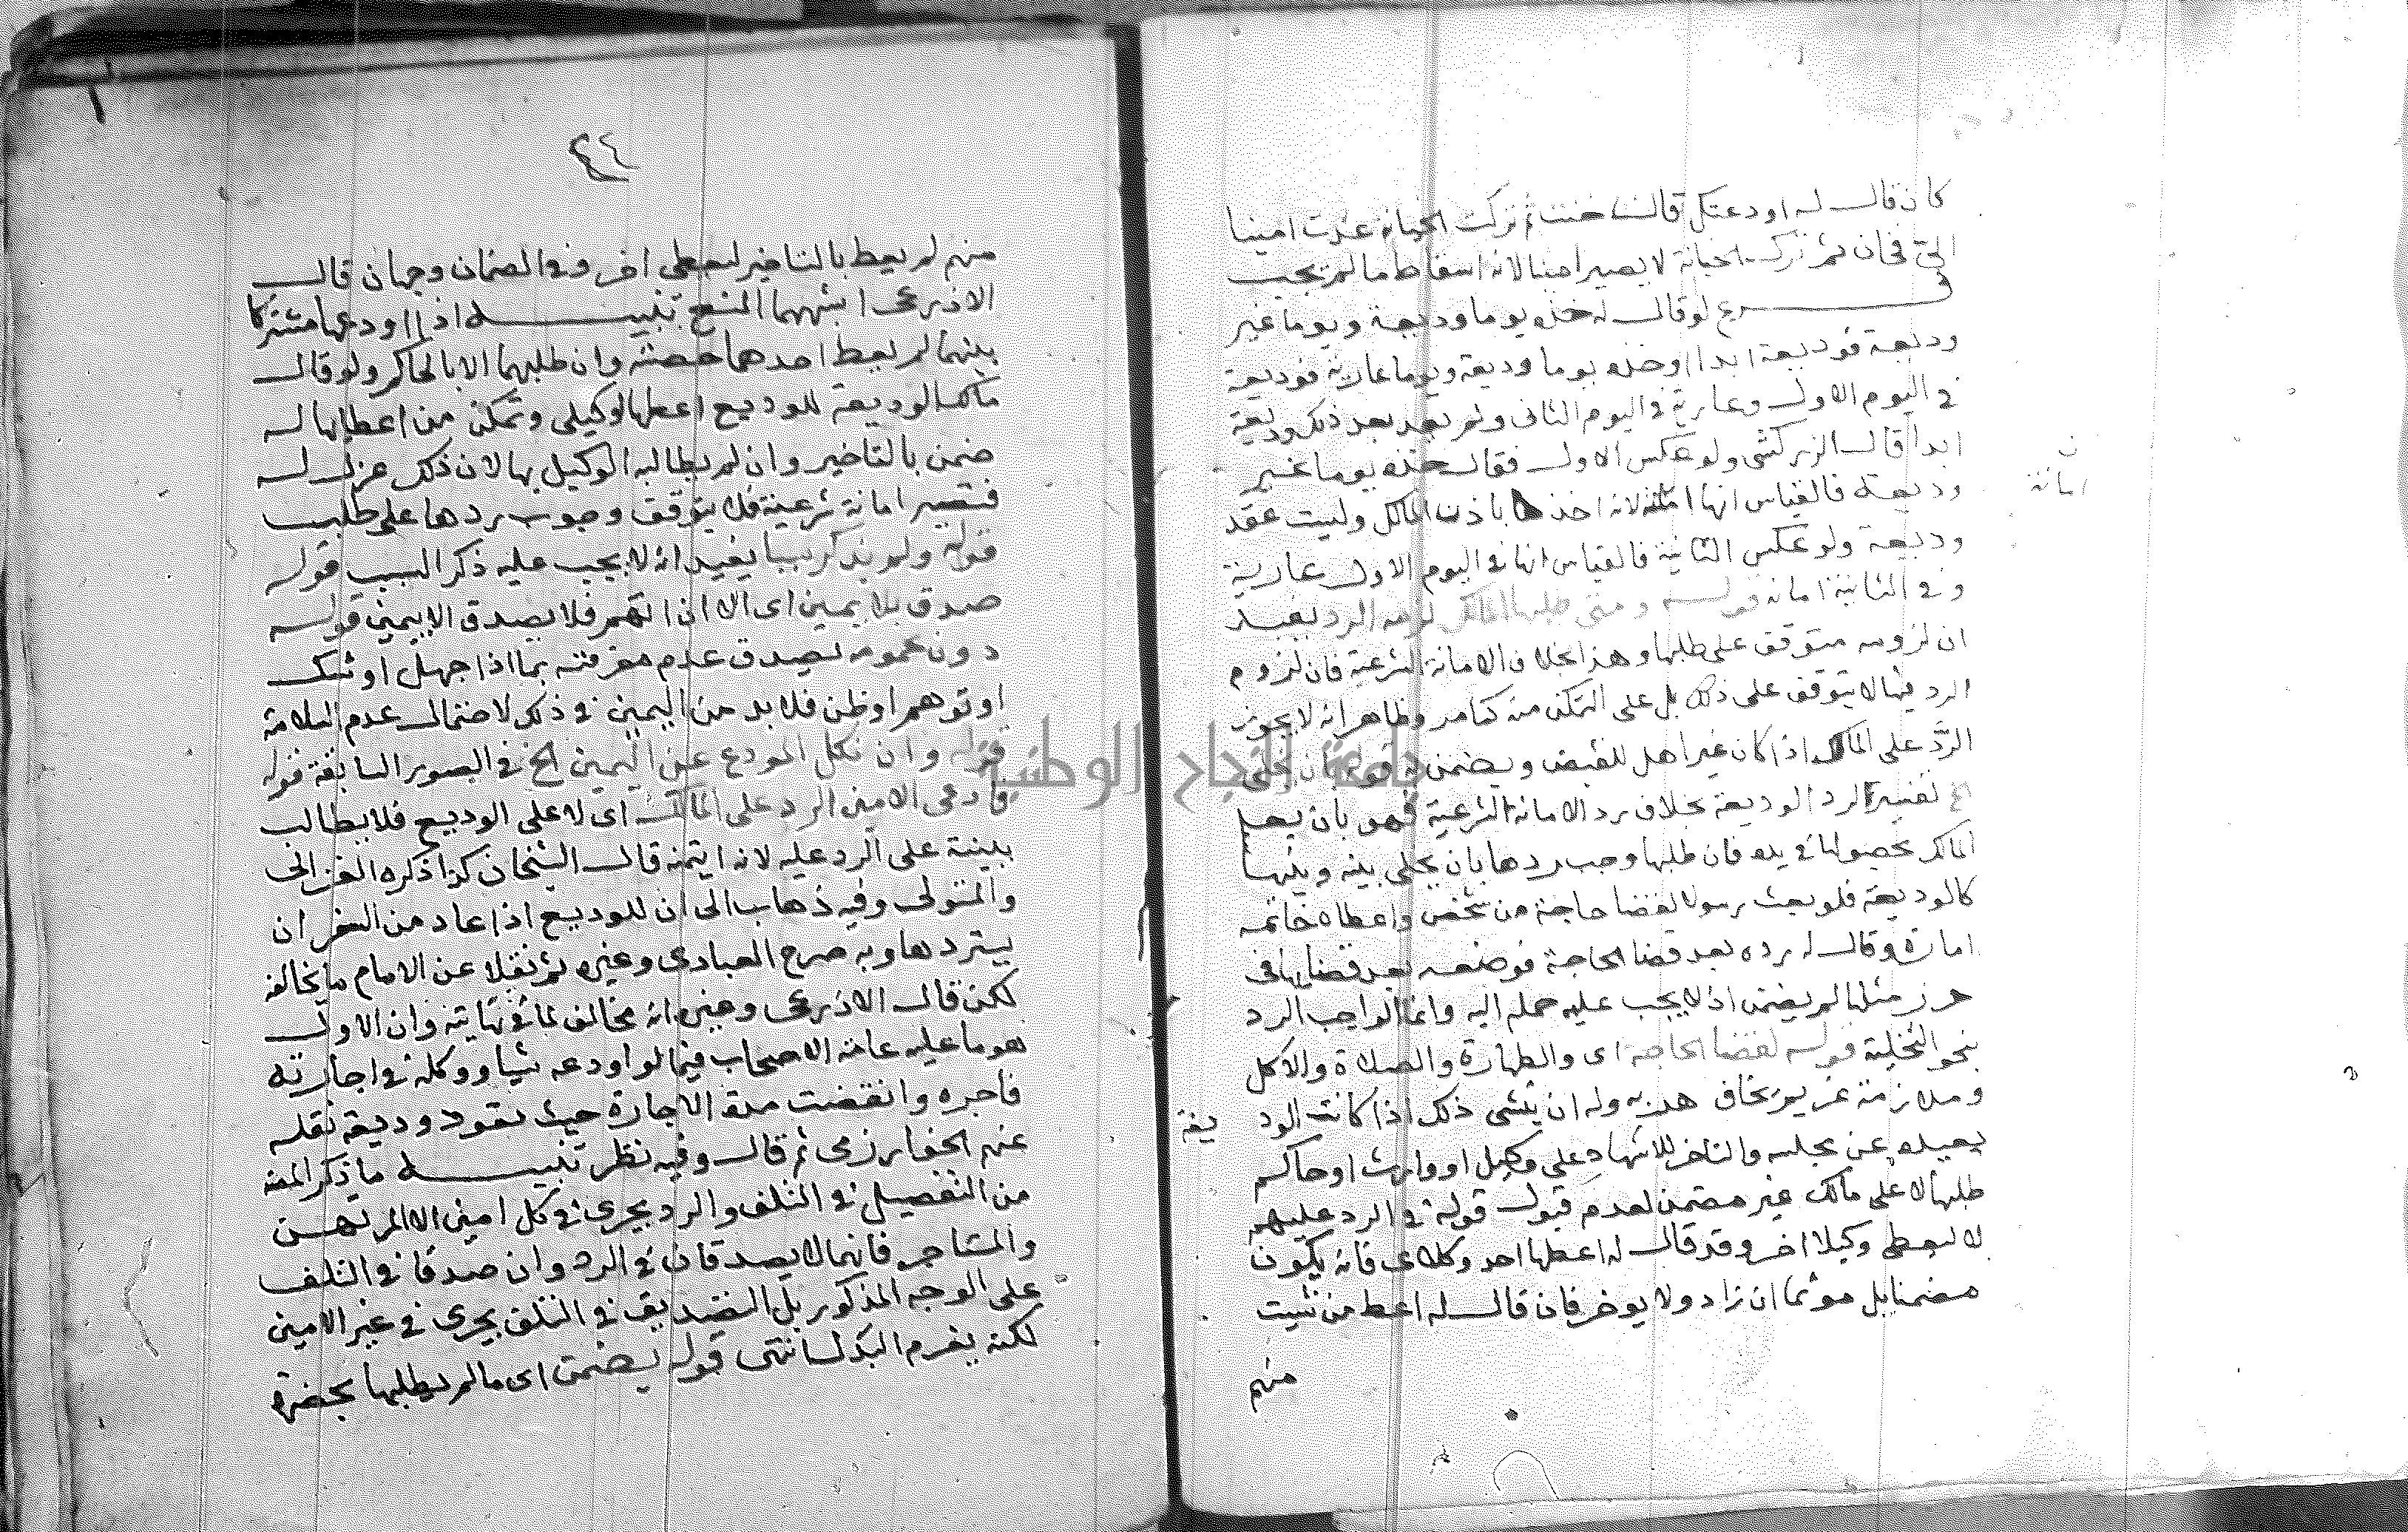 كان قال له اودعتك قال خنت ثم تركت الخيانة عدت امينا
الخ فخان ثم ترك الخيانة لا يصير امينا لانه اسقاط ما لم يجب
فرع لو قال له خذه يوما وديعة ويوما غير
وديعة فوديعة ابدا او خذه يوما وديعة ويوما عارية فوديعة
في اليوم الاول وعارية في اليوم الثاني ولم يعد بعد ذلك وديعة
ابدا قال الزركشي ولو عكس الاول فقال خذه يوما غير
وديعة فالقياس انها امانة لانه اخذها باذن المالك وليست عقد
ن
امانة
وديعة ولو عكس الثانية فالقياس انها في اليوم الاول عارية
وفي الثانية امانة قوله ومتى طلبها المالك لزمه الرد يفيد
ان لزومه متوقف على طلبها وهذا بخلاف الامانة الشرعية فان لزوم
الرد فيها لا يتوقف على ذلك بل على التمكن منه كما مر وظاهر انه لا يجوز
الرد على المالك اذا كان غير اهل للقبض ويضمن به قوله بان يخلي
الخ تفسير لرد الوديعة بخلاف رد الامانة الشرعية فهو بان يعلم
المالك بحصولها في يده فان طلبها وجب ردها بان يخلي بينه وبينها
كالوديعة فلو بعث رسولا لقضا حاجة من شخص واعطاه خاتمه
امارة وقال له رده بعد قضا الحاجة فوضعه بعد قضايها في
حرز مثلها لم يضمن اذ لا يجب عليه حمله اليه وانما الواجب الرد
بنحو التخلية قوله لقضا الحاجة اى والطهارة والصلاة والاكل
وملازمة غريم يخاف هربه وله ان ينشى ذلك اذا كانت الود يعة
بعيدة عن مجلسه والتاخر للاشهاد على وكيل او وارث او حاكم
طلبها لا على مالك غير مضمن لعدم قبول قوله في الرد عليهم
لا ليعطي وكيلا اخر وقد قال له اعطها احد وكلاى فانه يكون
مضمنا بل موثما ان زاد ولا يوخر فان قال له اعط من شيت
منهم
٤٤
منهم لم يعط بالتاخير ليعطي اخر وفي الضمان وجهان قال
الاذرعى اشبههما المنع تنبيه اذا اودعها مشتركا
بينهما لم يعط احدهما حصته وان طلبها الا بالحاكم ولو قال
مالك الوديعة للوديع اعطها لوكيلي وتمكن من اعطايها له
ضمن بالتاخير وان لم يطالبه الوكيل بها لان ذلك عزل له
فتصير امانة شرعية فلا يتوقف وجوب ردها على طلب
قوله ولم يذكر سببا يفيد انه لا يجب عليه ذكر السبب قوله
صدق بلا يمين اى الا ان اتهم فلا يصدق الا بيمين قوله
دون عمومه يصدق عدم معرفته بما اذا جهل او شك
او توهم او ظن فلا بد من اليمين في ذلك لاحتمال عدم السلامة
قوله وان نكل المودع عن اليمين الخ في الصور السابقة قوله
فادعى الامين الرد على المالك اى لا على الوديع فلا يطالب
ببينة على الرد عليه لانه ايتمنه قال الشيخان كذا ذكره الغزالى
والمتولى وفيه ذهاب الى ان للوديع اذا عاد من السفر ان
يستردها وبه صرح العبادى وغيره ثم نقلا عن الامام ما يخالفه
لكن قال الاذرعى وغيره انه مخالف لما في نهايته وان الاول
هو ما عليه عامة الاصحاب فيما لو اودعه شيا ووكله في اجارته
فاجره وانقضت مدة الاجارة حيث تعود وديعة نقله
عنهم الخوارزمى ثم قال وفيه نظر تنبيه ما ذكر المصنف
من التفصيل في التلف والرد يجرى في كل امين الا المرتهن
والمستاجر فانهما لا يصدقان في الرد وان صدقا في التلف
على الوجه المذكور بل التصديق في التلف يجرى في غير الامين
لكنه يغرم البدل انتهى قوله يضمن اى ما لم يطلبها بحضرة
جامعة النجاح الوطنية